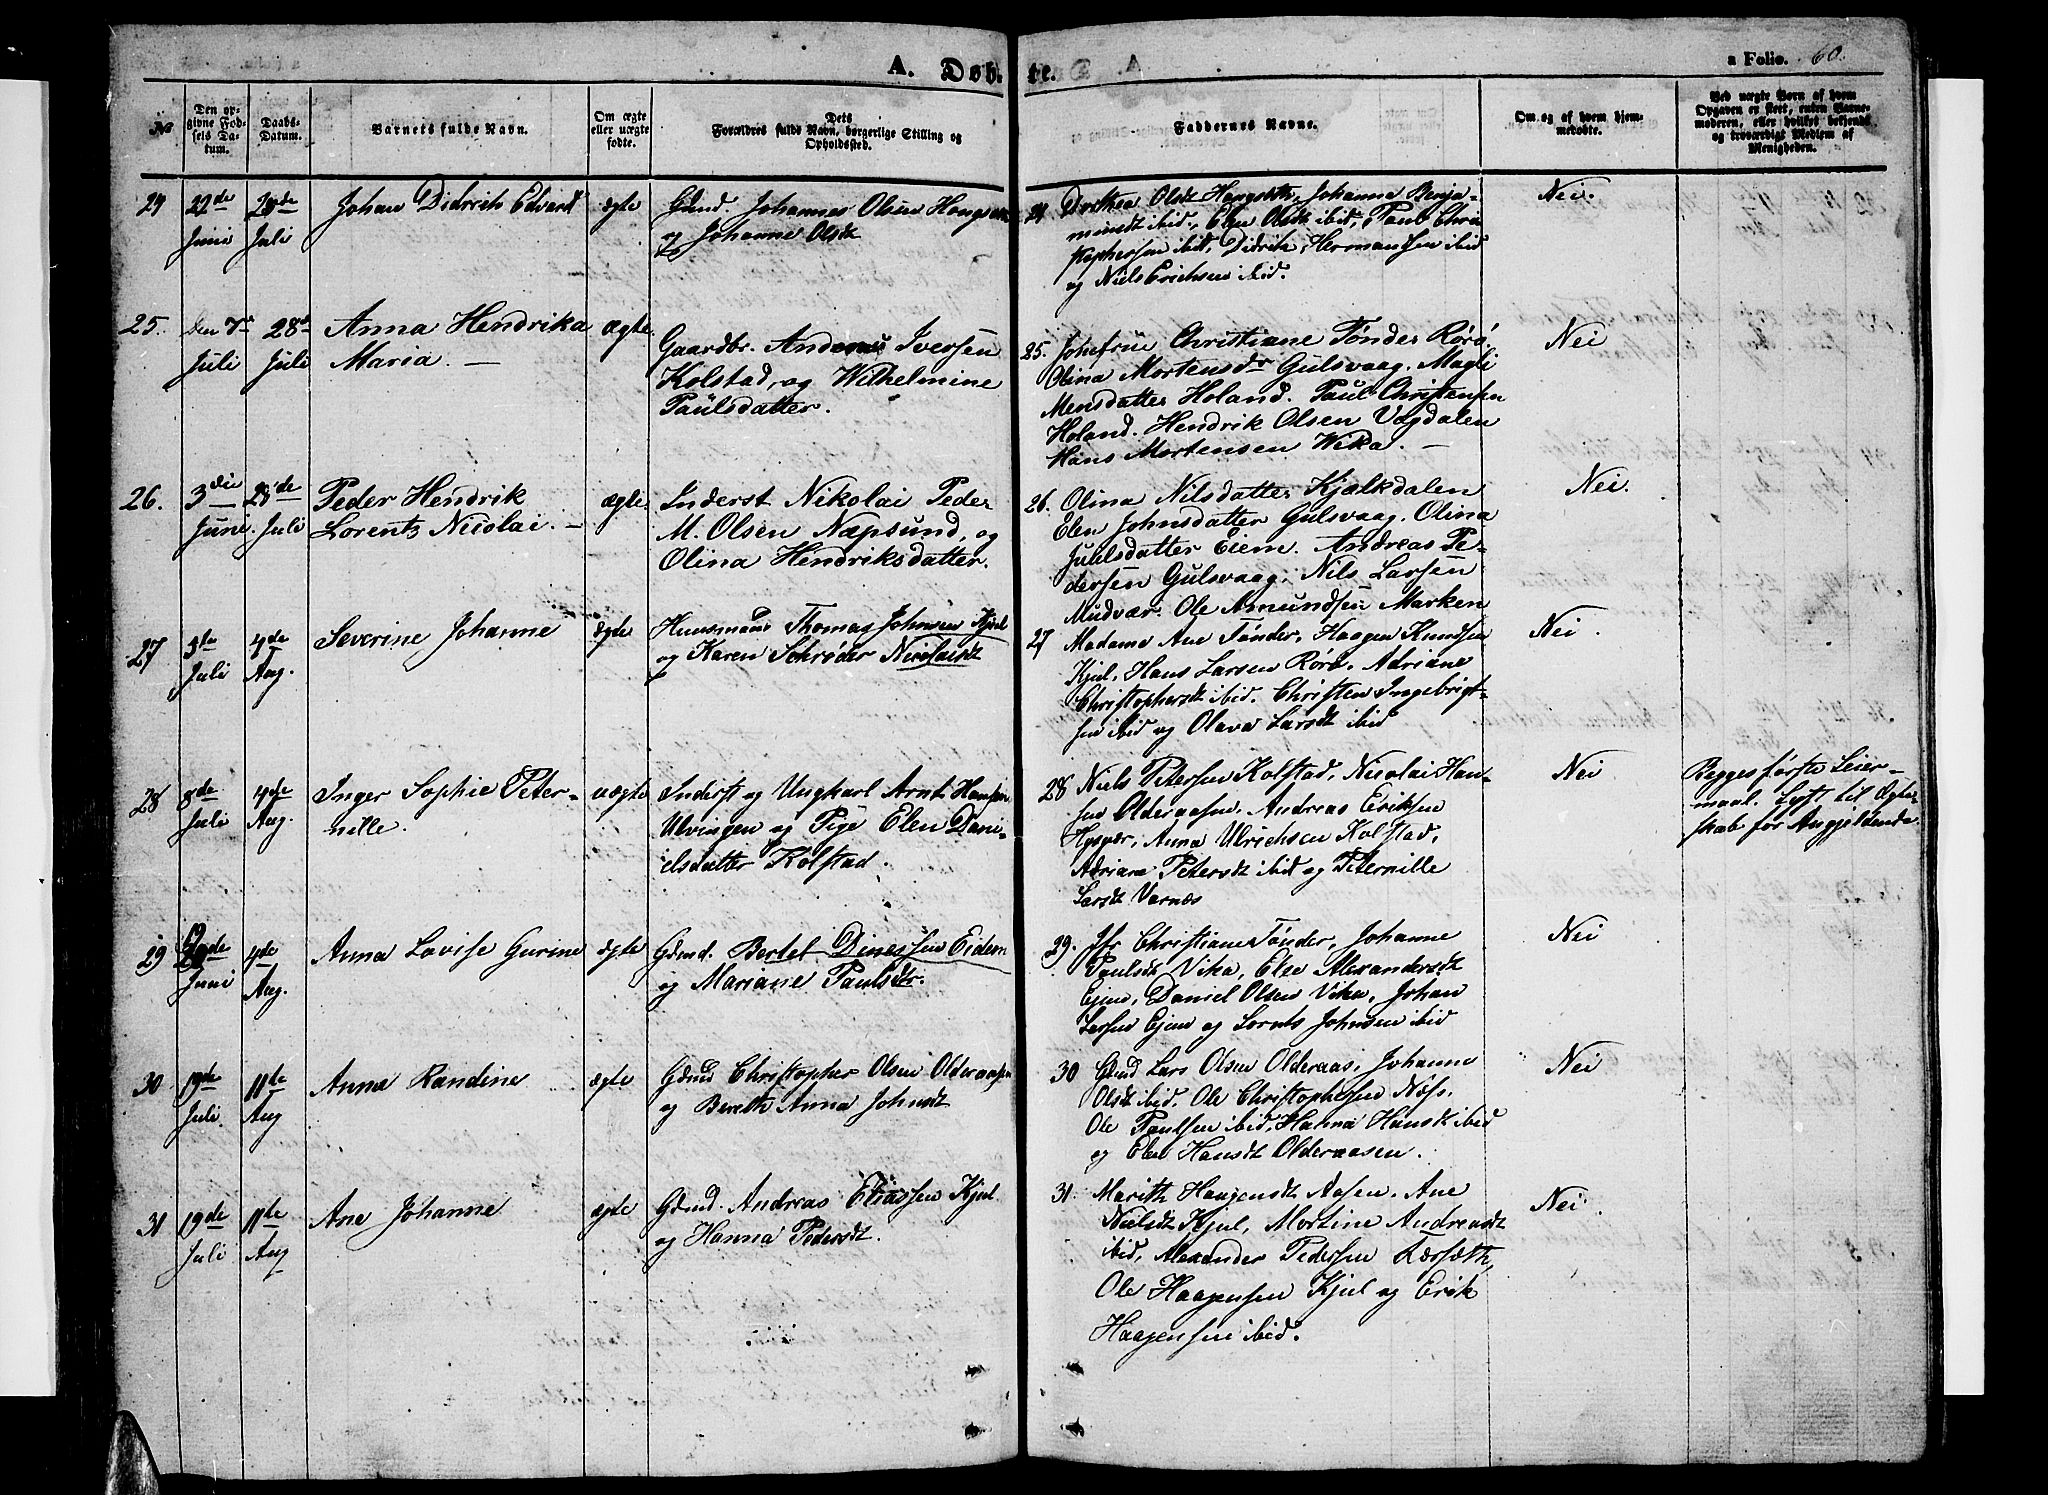 A. Døb-
te.
a Folio. 60.
No
Den op-
givne Fød-
sels Da-
tum.
Daabs-
Datum.
Barnets fulde Navn.
Om ægte
eller uægte
fødte.
Dets
Forældres fulde Navn, borgerlige Stilling og
Opholdssted.
Faddernes Navne.
Om og af hvem hjem-
medøbte.
Ved uægte Børn af hvem
Opgaven er skeet, enten Barne-
moderen, eller hvilket bekjendt
og troværdigt Medlem af
Menigheden.
24
22de
Juni
28de
Juli
Johan Didrich Edvard
ægte
Gdmd. Johannes Olsen
og Johanne Olsdt
24
Dorthea Olsdt Johanna Benja-
minsdt ibid., Elen Olsdt ibid, Paul Chri
ibid, Didrik Hermansen ibid
og Niels Erichsen ibid.
Nei.
25.
den 7de
Juli
28de
Juli
Anna Hendrika
Maria. —
ægte.
Gaardbr. Andreas Iversen
Kolstad, og Wilhelmine
Paulsdatter.
25.
Jomfrue Christiane Tønder Rørø.
Olina Mortensdr Gulsvaag. Magli
Mensdatter Holand. Paul Christensen
Holand. Hendrik Olsen Vagdalen
Hans Mortensen Wika. —
Nei
26.
3die
Juni.
28de
Juli
Peder Hendrik
Lorents Nicolai. —
ægte.
Inderst Nikolai Peder
M. Olsen Næpsund, og
Olina Hendriksdatter.
26.
Olina Nilsdatter Kjælkdalen
Elen Johnsdatter Gulsvaag. Olina
Juulsdatter Eiene. Andreas Pe-
dersen Gulsvaag. Nils Larsen
Mudvær. Ole Amundsen Marken
Nei.
27
3te
Juli
4de
Aug.
Severine Johanne
ægte
Huusmand Thomas Johnsen Kjul
og Karen Schrøder Nicolaisdt
27
Madame Ane Tønder, Haagen Knudsen
Kjul, Hans Larsen Rørø. Adriane
Christophersdt ibid. Christen Ingebrigt-
sen ibid og Olava Larsdt ibid
Nei.
28
8de
Juli
4de
Aug.
Inger Sophie Peter-
nille.
uægte
Inderst og Ungkarl Arnt Hansen
Ulvingen og Pige Elen Dani-
elsdatter Kolstad.
28
Niels Petersen Kolstad, Nicolai Han-
sen Olderaasen, Andreas Eriksen
Hysvær, Anna Ulrichsen Kolstad,
Adriane Petersdt ibid og Peternille
Larsdt Varnæs
Nei
Begges første Leier-
maal. Lyst til Ægte-
skab for Angjeldende
29
Juni
4de
Aug.
Anna Lovise Gurine
ægte
Gdmd. Bertel Dinessen Eidem
og Mariane Paulsdtr.
29.
Jfr Christiane Tønder, Johanne
Paulsdt Vika, Else Alexandersdt
Ejen, Daniel Olsen Vika, Johan
Larsen Ejen og Lornts Johnsen ibid
Nei
30
19de
Juli.
11te
Aug
Anna Randine
ægte
Gdmd Christopher Olsen Olderaasen
og Bereth Anna Johnsdt
30
Gdmd Lars Olsen Olderaas, Johanna
Olsdt ibid. Ole Christophersen Næss.
Ole Paulsen ibid, Hanna Hansdt ibid
og Elen Hansdt Olderaasen.
Nei
31
19de
Juli
11te
Aug
Ane Johanne
ægte
Gdmd. Andreas Eliassen Kjul
og Hanna Pedersdt.
31
Marith Haagensdt Aasen. Ane
Nielsdt Kjul, Mortine Andreasdt
ibid, Alexander Pedersen
Ole Haagensen Kjul og Erik
Haagensen ibid.
Nei.